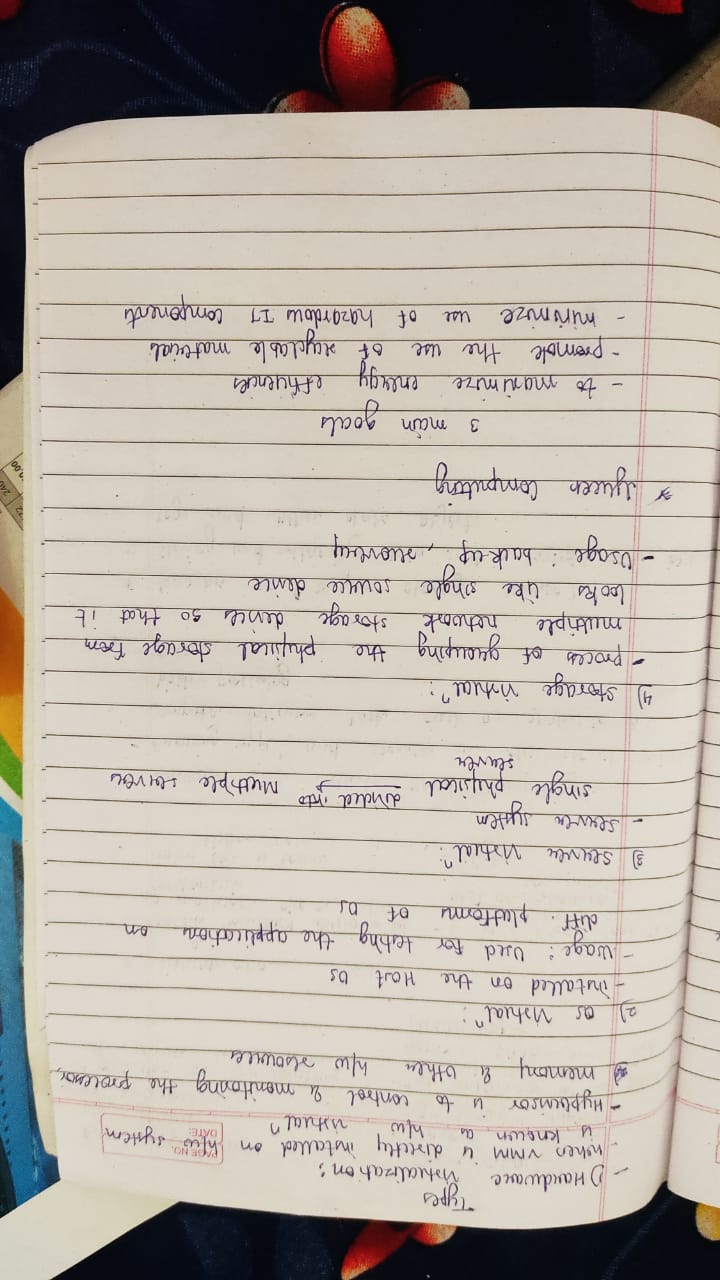 Types
- 1) Hardware Virtualization:
PAGE NO.
DATE:
- when VMM is directly installed on h/w system
is known as h/w virtualⁿ
- Hypervisor is to control & monitoring the processor,
memory & other h/w resources
2) OS Virtualⁿ:
- installed on the Host OS
- Usage: Used for testing the applications on
diff. platforms of OS
3) Server Virtualⁿ:
- Server system
single physical divided into Multiple servers
server
4) Storage virtualⁿ:
- process of grouping the physical storage from
multiple network storage devices so that it
looks like single source device
- Usage: back-up, recovery
* Green Computing
3 main goals
- to maximize energy efficiencies
- promote the use of recyclable materials
- minimize use of hazardous IT components